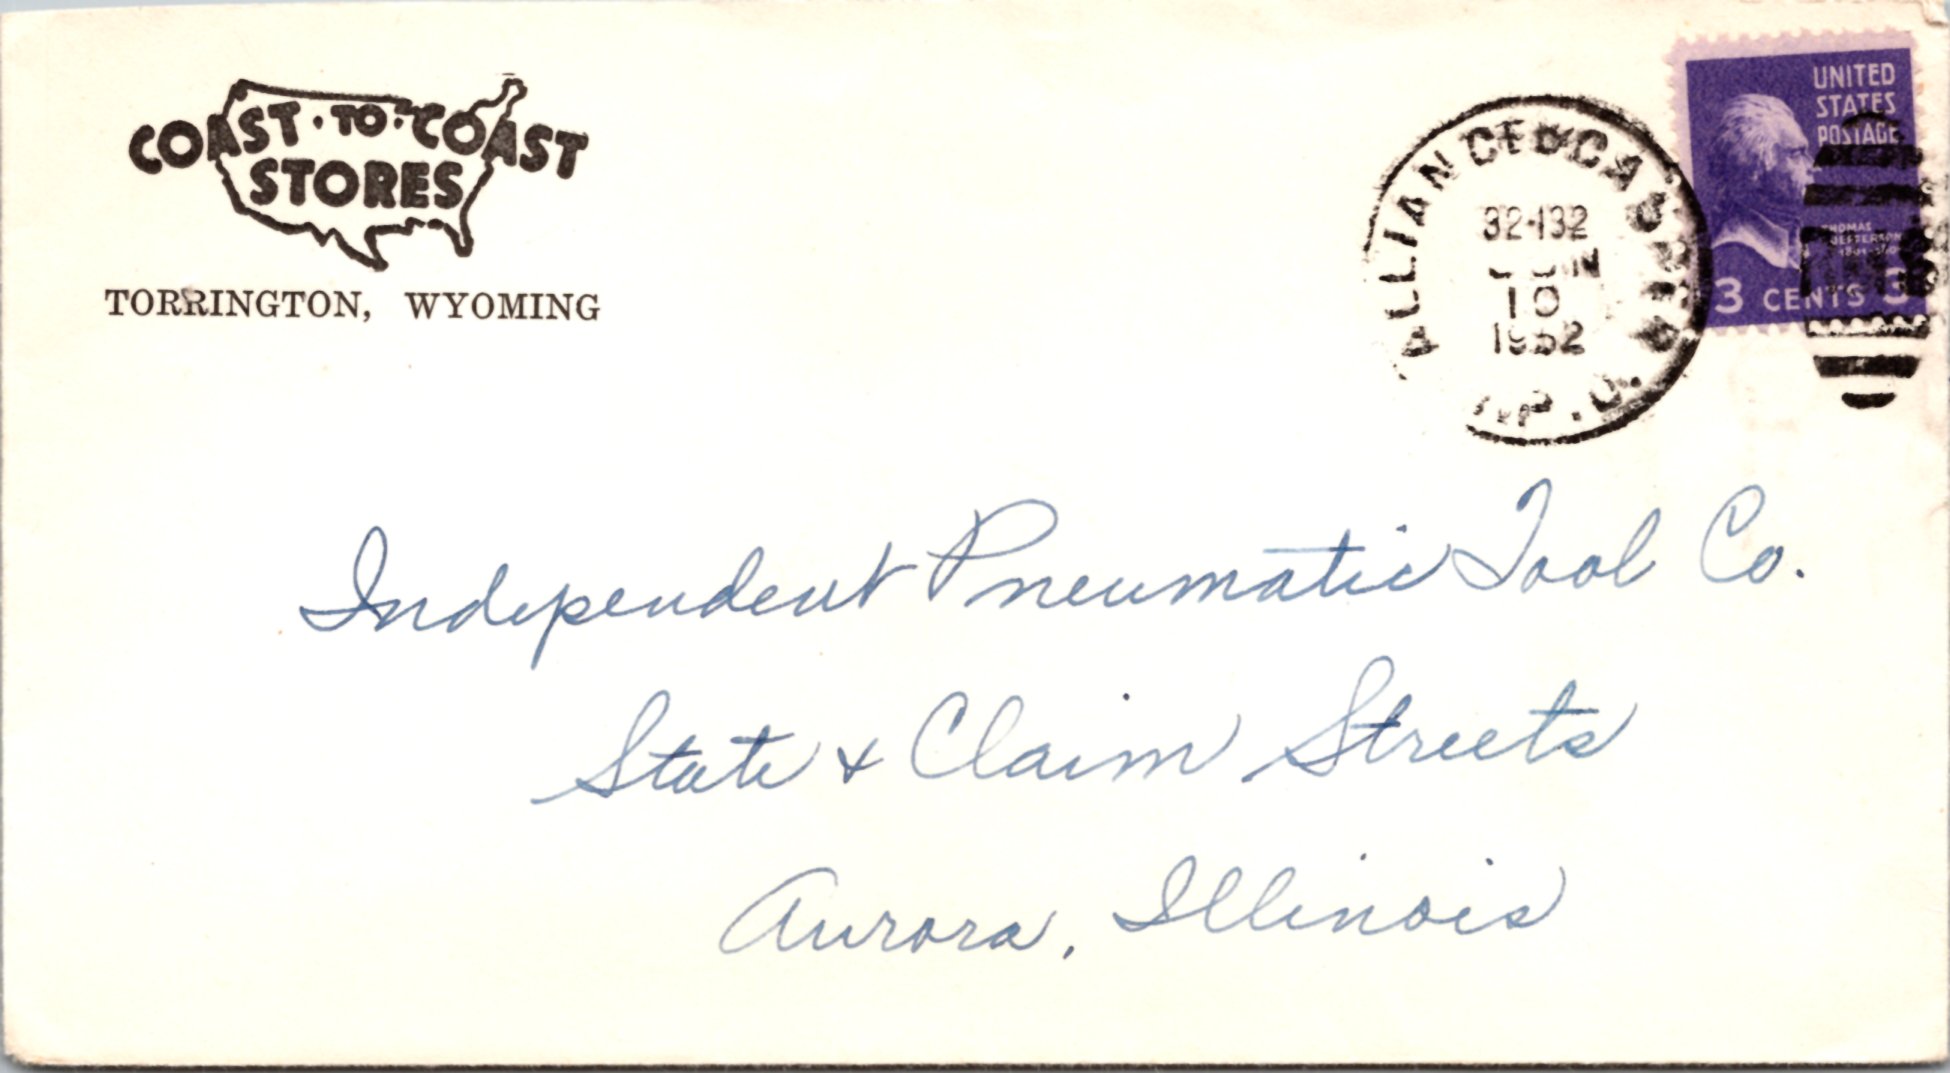 COAST·TO·COAST
STORES
TORRINGTON, WYOMING
UNITED
STATES
POSTAGE
THOMAS
JEFFERSON
3 CENTS 3
ALLIANCE & CASPER
R.P.O.
JUN
10
1952
Independent Pneumatic Tool Co.
State & Claim Streets
Aurora, Illinois